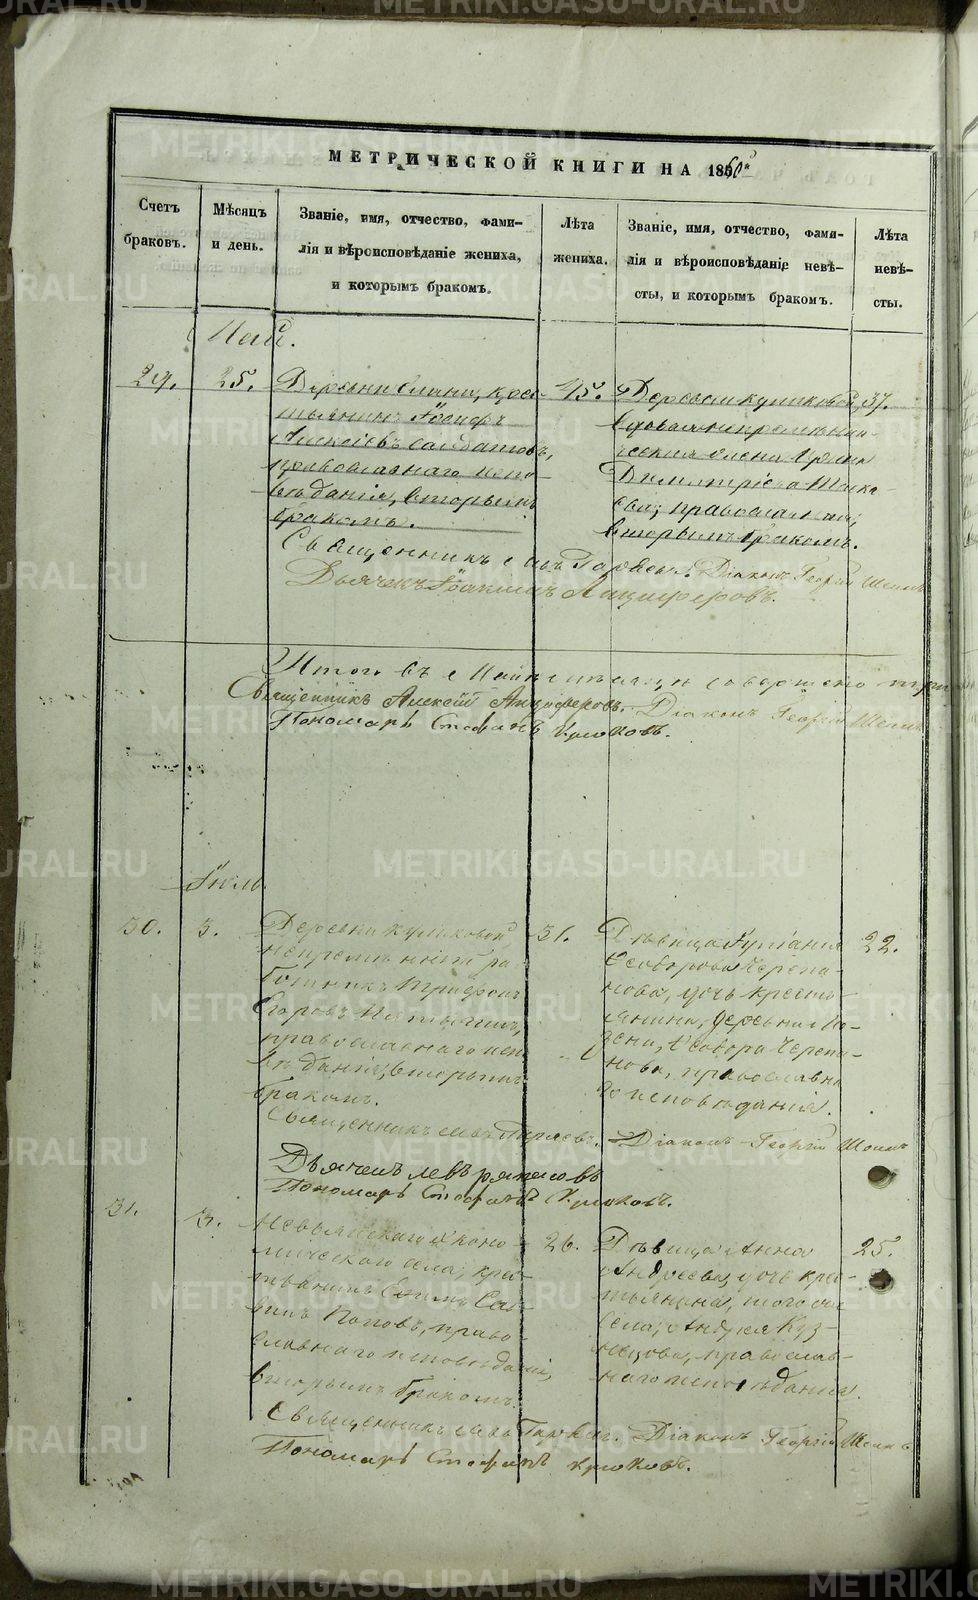 МЕТРИЧЕСКОЙ КНИГИ НА 1860й
Счетъ браковъ.
Мѣсяцъ и день.
Званіе, имя, отчество, фами-
лія и вѣроисповѣданіе жениха,
и которымъ бракомъ.
Лѣта жениха.
Званіе, имя, отчество, фами-
лія и вѣроисповѣданіе невѣ-
сты, и которымъ бракомъ.
Лѣта невѣ-
сты.
Май.
29.
25.
Деревни крес-
тьянинъ Іосифъ
Алексѣевъ Солдатовъ,
православнаго испо-
вѣданія, вторымъ
бракомъ.
45.
Деревни Куликовой,
вдовая непремѣнни-
ческая жена Ирина
Димитріева
православная;
вторымъ бракомъ.
37.
Священникъ Левъ Гаряевъ. Діаконъ Георгій
Дьячекъ Іоакимъ Анциферовъ.
Итого въ Маѣ мѣсяцѣ совершено три
Священникъ Алексѣй Анциферовъ. Діаконъ Георгій
Пономарь Стефанъ Крюковъ.
Іюль.
30.
3.
Деревни Куликовой
непремѣнный ра-
ботникъ Трифонъ
Егоровъ
православнаго испо-
вѣданія, вторымъ
бракомъ.
31.
Дѣвица Іуліанія
Ѳеодорова Черепа-
нова, дочь кресть-
янина, деревни
Ѳеодора Черепа-
нова, православна-
го исповѣданія.
22.
Священникъ Левъ Гаряевъ. Діаконъ Георгій
Дьячекъ Левъ
Пономарь Стефанъ Крюковъ.
31.
3.
Невьянскаго эконо-
мическаго села, крес-
тьянинъ Ефимъ Сав-
винъ Поповъ, право-
славнаго исповѣданія,
вторымъ бракомъ.
26.
Дѣвица Анна
Андреева, дочь крес-
тьянина, того же
села, Андрея Куз-
нецова, православ-
наго исповѣданія.
25.
Священникъ Левъ Гаряевъ. Діаконъ Георгій
Пономарь Стефанъ Крюковъ.
METRIKI.GASO-URAL.RU